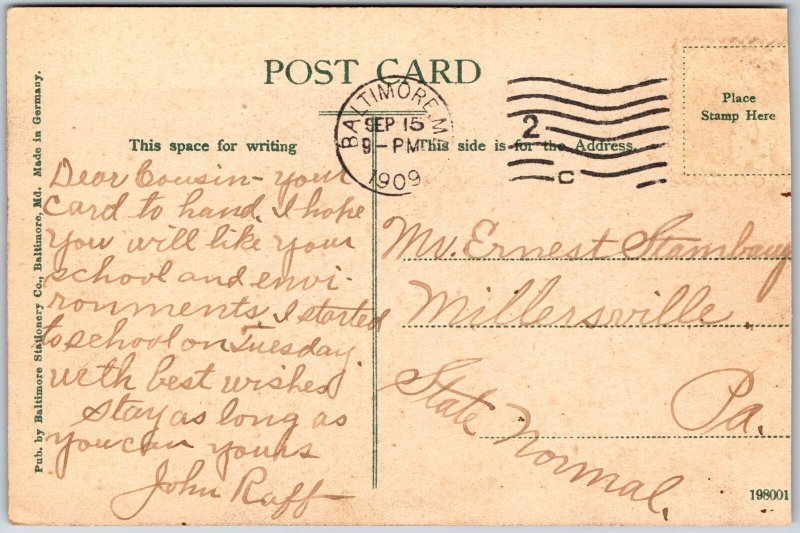 POST CARD
BALTIMORE, M
SEP 15
9-PM
1909
2
C
Place
Stamp Here
This space for writing
This side is for the Address.
Dear Cousin- your
card to hand. I hope
you will like your
school and envi-
ronments. I started
to school on Tuesday
with best wishes
Stay as long as
you can yours
John Raff
Mr. Ernest Stambaug
Millersville
Pa.
State Normal.
198001
Pub. by Baltimore Stationery Co., Baltimore, Md. Made in Germany.